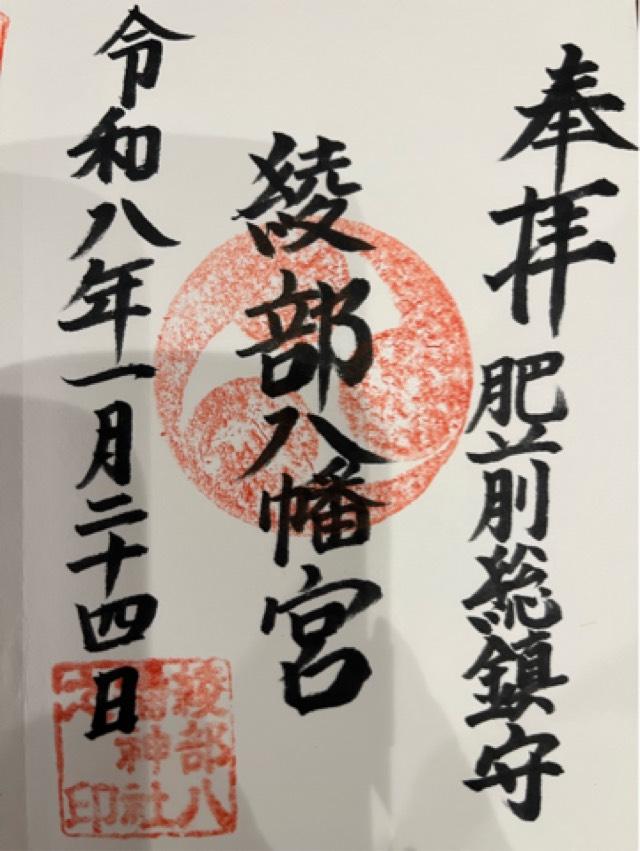 奉拝 肥前総鎮守
綾部八幡宮
令和八年一月二十四日
綾部八
幡神社
之印